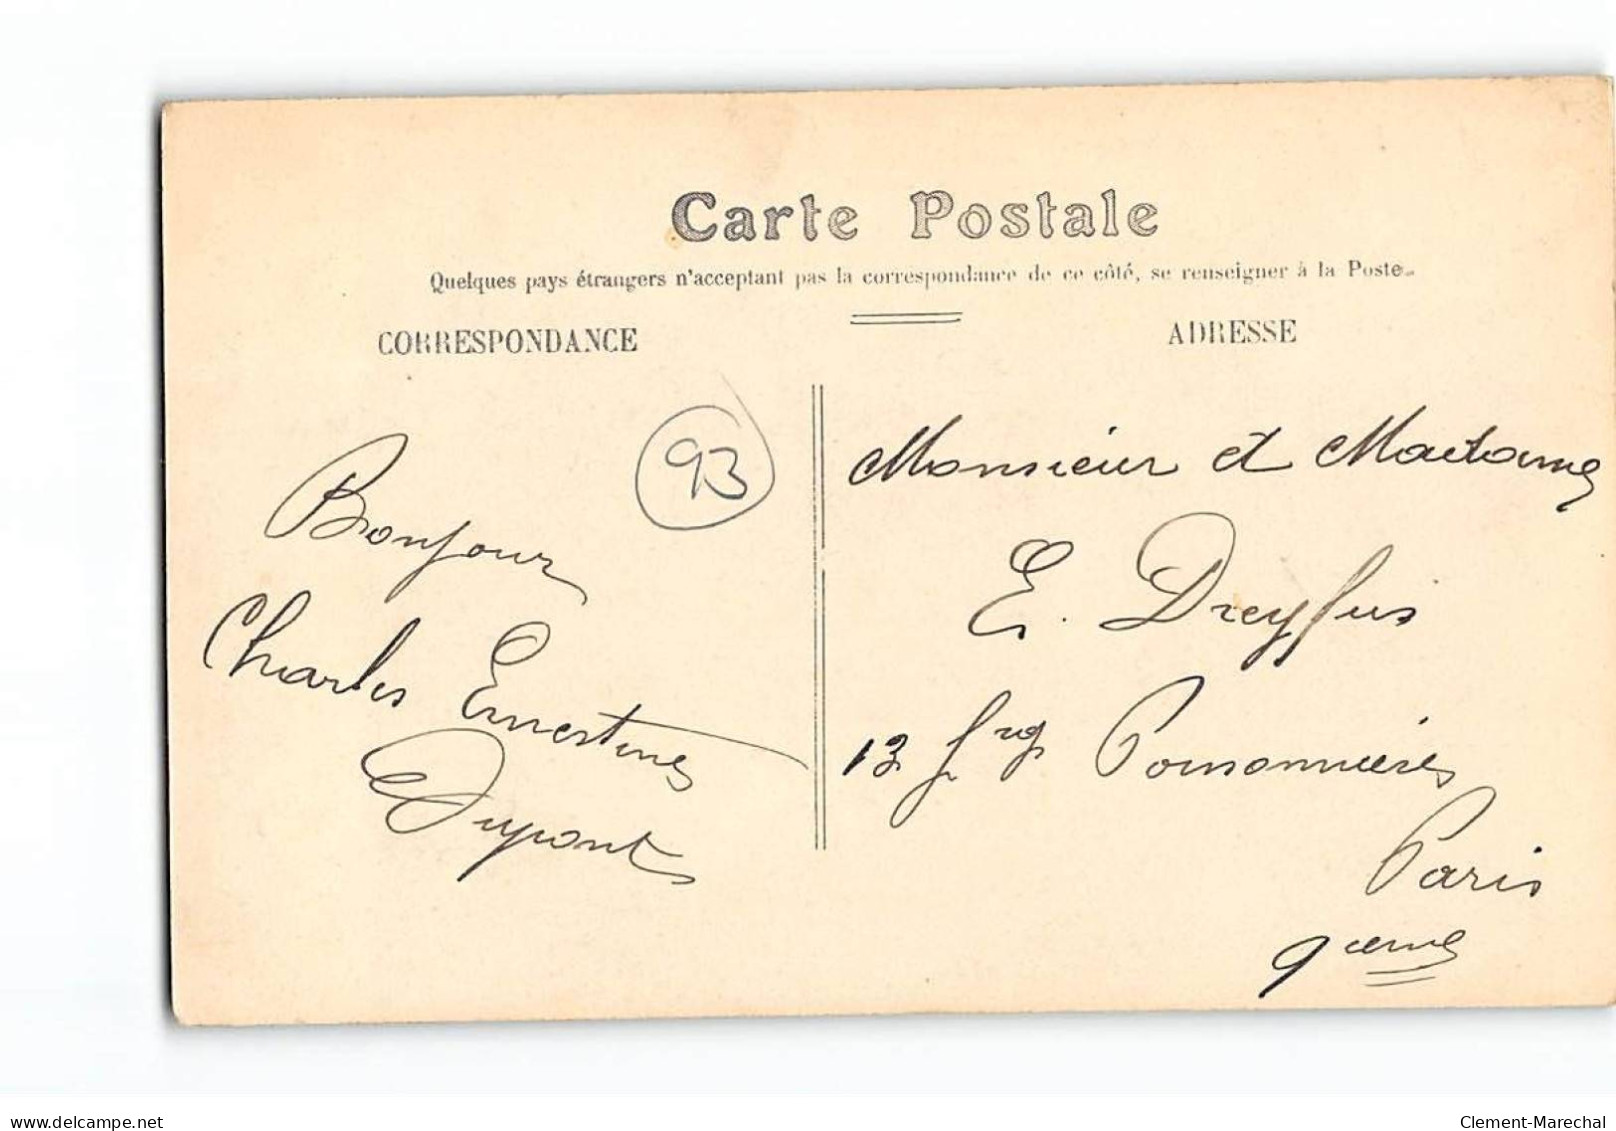 Carte Postale
Quelques pays étrangers n'acceptant pas la correspondance de ce côté, se renseigner à la Poste.
CORRESPONDANCE
ADRESSE
93
Bonjour
Charles Ernestine
Dupont
Monsieur et Madame
E. Dreyfus
13 fbrg Poissonnières
Paris
9eme
www.delcampe.net
Clement-Marechal